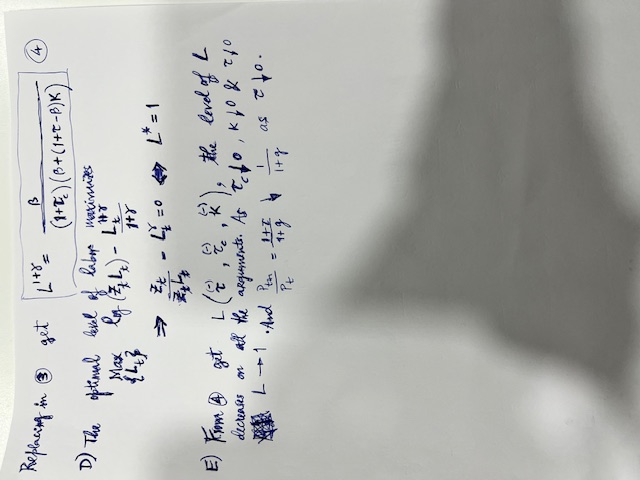 Replacing in ③ get L^{1+γ} = β / ((1+τ_c)(β+(1+τ-β)K)) ④
D) The optimal level of labor maximizes
Max {L_t} log(Z_t L_t) - L_t^{1+γ} / 1+γ
⇒ Z_t / Z_t L_t - L_t^γ = 0 ⇔ L* = 1
E) From ④ get L(τ^{(-)}, τ_c^{(-)}, K^{(-)}), the level of L
decreases on all the arguments. As τ_c↓0, K↓0 & τ↓0
L → 1. And P_{t+1} / P_t = 1+τ / 1+g ↓ 1 / 1+g as τ↓0.